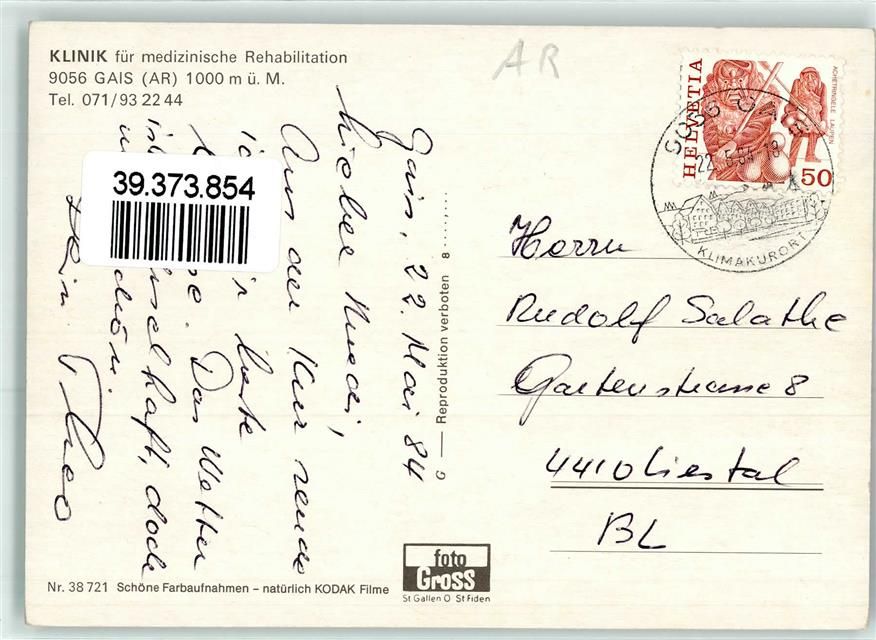 KLINIK für medizinische Rehabilitation
9056 GAIS (AR) 1000 m ü. M.
Tel. 071/93 22 44
AR
HELVETIA
ACHETRINGELE LAUPEN
50
9056 GAIS
22.5.84-18
KLIMAKURORT
39.373.854
Gais, 22. Mai 84
Lieber Ruedi,
Aus der Kur sende
ich beste
Das Wetter
ist haft, doch
schön.
Dein Theo
G — Reproduktion verboten 8 .....,...
Herrn
Rudolf Salathe
Gartenstrasse 8
4410 Liestal
BL
foto
Gross
St Gallen O St Fiden
Nr. 38 721 Schöne Farbaufnahmen – natürlich KODAK Filme